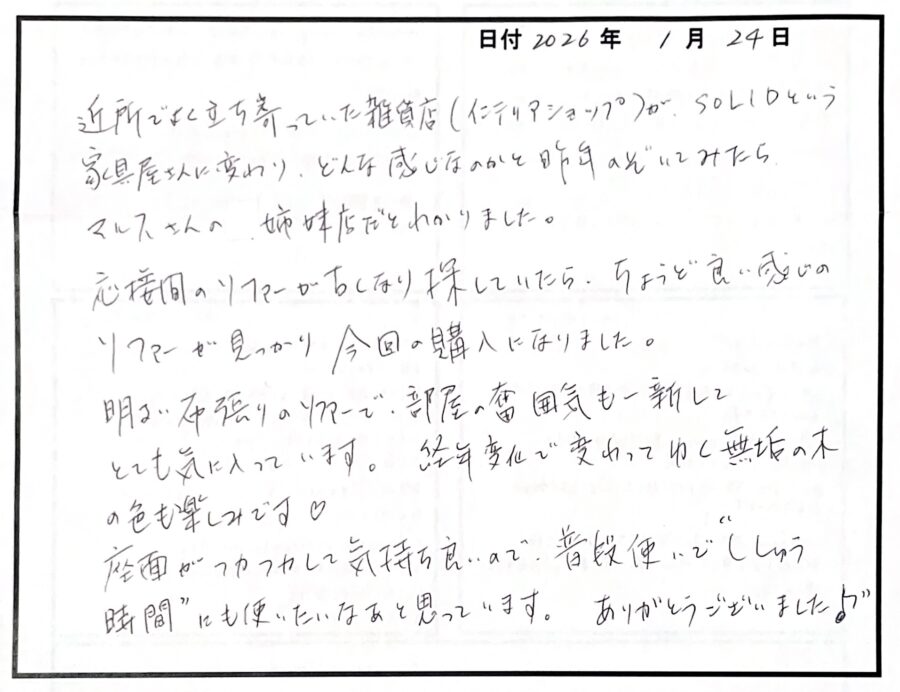 日付 2026年 1月 24日
近所でよく立ち寄っていた雑貨店(インテリアショップ)が、SOLIDという
家具屋さんに変わり、どんな感じなのかと昨年のぞいてみたら、
マルスさんの、姉妹店だとわかりました。
応接間のソファーが古くなり探していたら、ちょうど良い感じの
ソファーが見つかり今回の購入になりました。
明るい布張りのソファーで、部屋の雰囲気も一新して
とても気に入っています。経年変化で変わってゆく無垢の木
の色も楽しみです♡
座面がフカフカして気持ち良いので、普段使いで“ししゅう
時間”にも使いたいなぁと思っています。 ありがとうございました♪